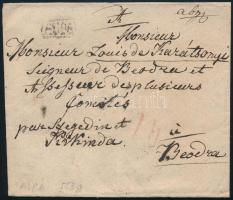 A
Monsieur
Monsieur Louis de Karátsonyi
Seigneur de Beodra et
Assesseur de plusieurs
Comités
par Szegedin et
Kikinda
à
Beodra